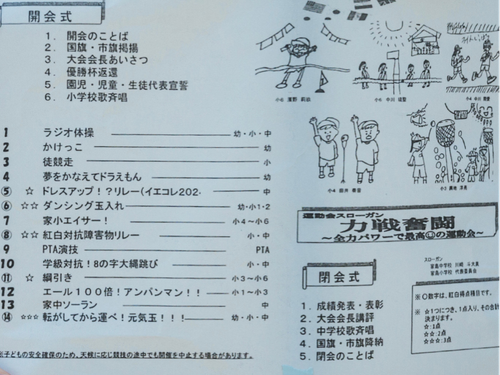 開会式
1. 開会のことば
2. 国旗・市旗掲揚
3. 大会会長あいさつ
4. 優勝杯返還
5. 園児・児童・生徒代表宣誓
6. 小学校歌斉唱
1 ラジオ体操 幼・小・中
2 かけっこ 幼
3 徒競走 小
4 夢をかなえてドラえもん 幼
⑤ ☆ ドレスアップ！？リレー(イエコレ202 中
⑥ ☆☆ ダンシング玉入れ 幼・小1・2
7 家小エイサー！ 小4～6
⑧ ☆☆☆ 紅白対抗障害物リレー 中
9 PTA演技 PTA
10 学級対抗！8の字大縄跳び 小・中
⑪ ☆ 綱引き 小3～6
12 エール100倍！アンパンマン！！ 小1～3
13 家中ソーラン 中
⑭ ☆☆☆ 転がしてから運べ！元気玉！！！ 幼・小・中
子どもの安全確保のため、天候に応じ競技の途中でも開催を中止する場合があります。
運動会スローガン
力戦奮闘
～全力パワーで最高の運動会～
スローガン
閉会式
1. 成績発表・表彰
2. 大会会長講評
3. 中学校歌斉唱
4. 国旗・市旗降納
5. 閉会のことば
※〇数字は、紅白得点種目です。
※☆1つにつき、1点入り、その合計
決まります。
☆:1点
☆☆:2点
☆☆☆:3点